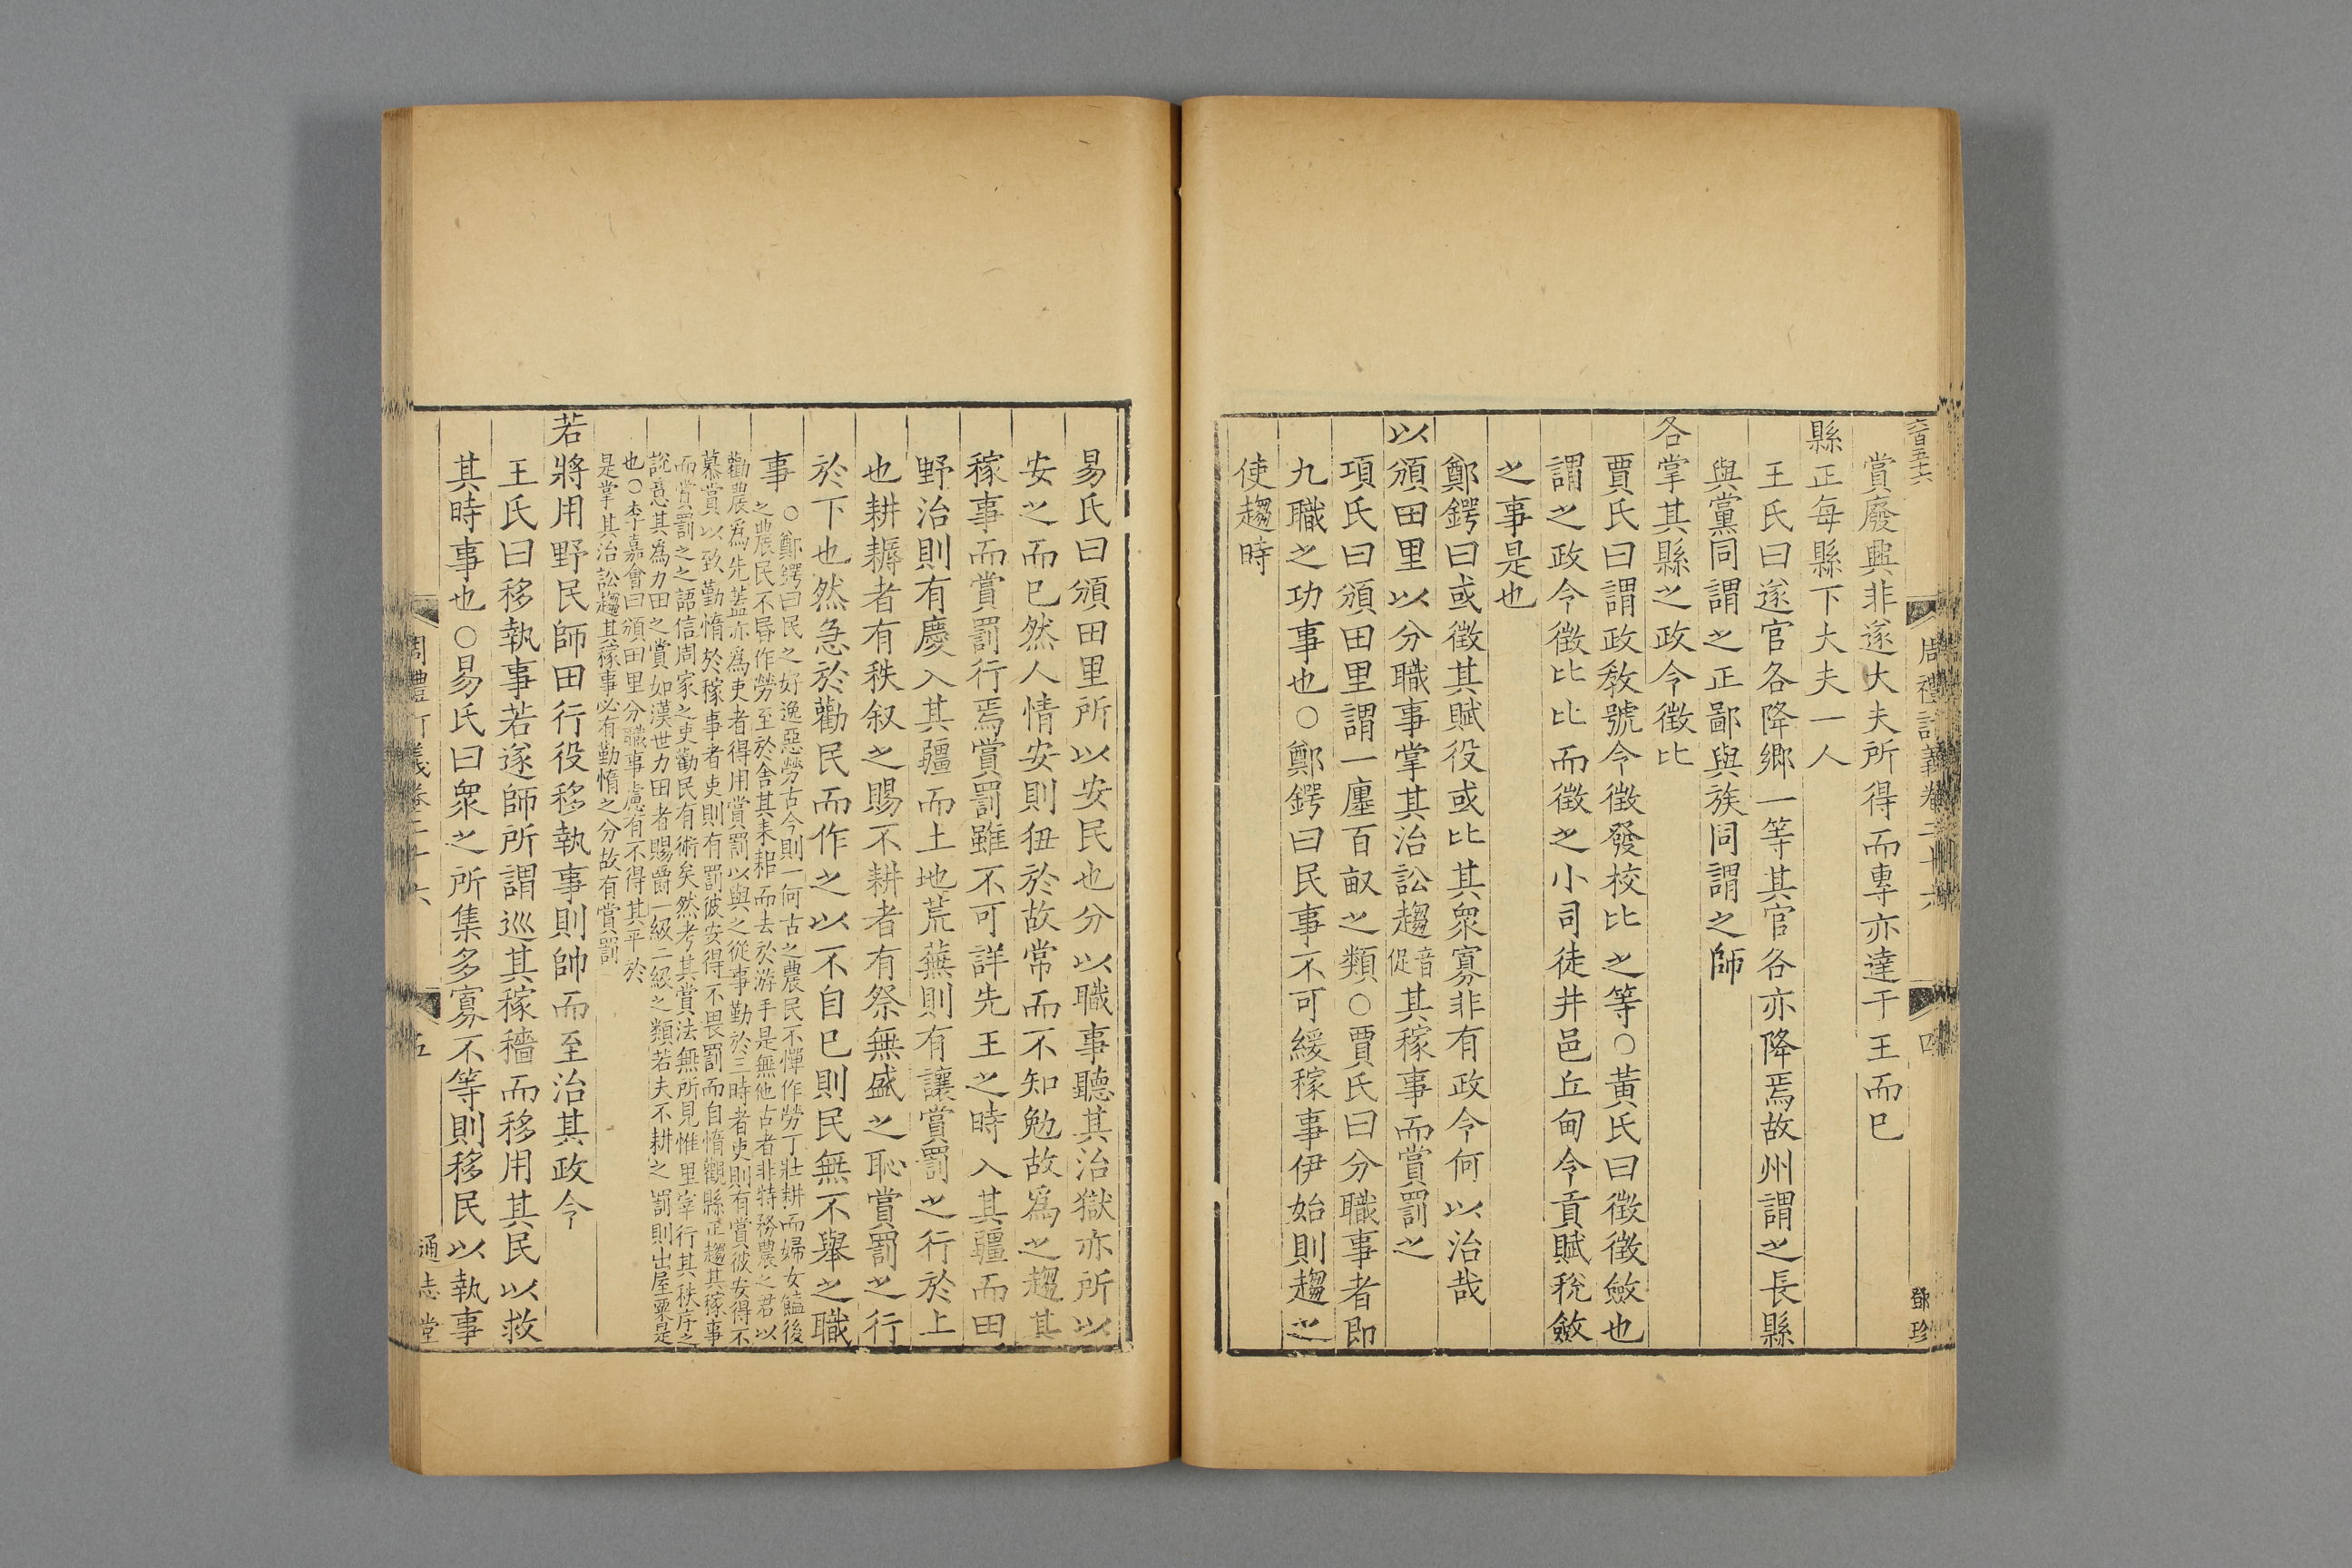 六百五十六
周禮訂義卷二十六
四
鄧珍
賞廢興非遂大夫所得而專亦達于王而已
縣正每縣下大夫一人
王氏曰遂官各降鄉一等其官各亦降焉故州謂之長縣
與黨同謂之正鄙與族同謂之師
各掌其縣之政令徵比
賈氏曰謂政敎號令徵發校比之等○黃氏曰徵徵斂也
謂之政令徵比比而徵之小司徒井邑丘甸令貢賦稅斂
之事是也
鄭鍔曰或徵其賦役或比其衆寡非有政令何以治哉
以頒田里以分職事掌其治訟趨音促其稼事而賞罰之
項氏曰頒田里謂一廛百畝之類○賈氏曰分職事者即
九職之功事也○鄭鍔曰民事不可緩稼事伊始則趨之
使趨時
易氏曰頒田里所以安民也分以職事聽其治獄亦所以
安之而已然人情安則狃於故常而不知勉故爲之趨其
稼事而賞罰行焉賞罰雖不可詳先王之時入其疆而田
野治則有慶入其疆而土地荒蕪則有讓賞罰之行於上
也耕耨者有秩叙之賜不耕者有祭無盛之恥賞罰之行
於下也然急於勸民而作之以不自已則民無不舉之職
事○鄭鍔曰民之好逸惡勞古今則一何古之農民不憚作勞丁壯耕而婦女饁後
之農民不昬作勞至於舍其耒耜而去於游手是無他古者非特務農之君以
勸農爲先葢亦爲吏者得用賞罰以與之從事勤於三時者吏則有賞彼安得不
慕賞以致勤惰於稼事者吏則有罰彼安得不畏罰而自惰觀縣正趨其稼事
而賞罰之之語信周家之吏勸民有術矣然考其賞法無所見惟里宰行其秩序之
說意其爲力田之賞如漢世力田者賜爵一級二級之類若夫不耕之罰則出屋粟是
也○李嘉會曰頒田里分職事慮有不得其平於
是掌其治訟趨其稼事必有勤惰之分故有賞罰
若將用野民師田行役移執事則帥而至治其政令
王氏曰移執事若遂師所謂巡其稼穡而移用其民以救
其時事也○易氏曰衆之所集多寡不等則移民以執事
周禮訂義卷二十六
五
通志堂